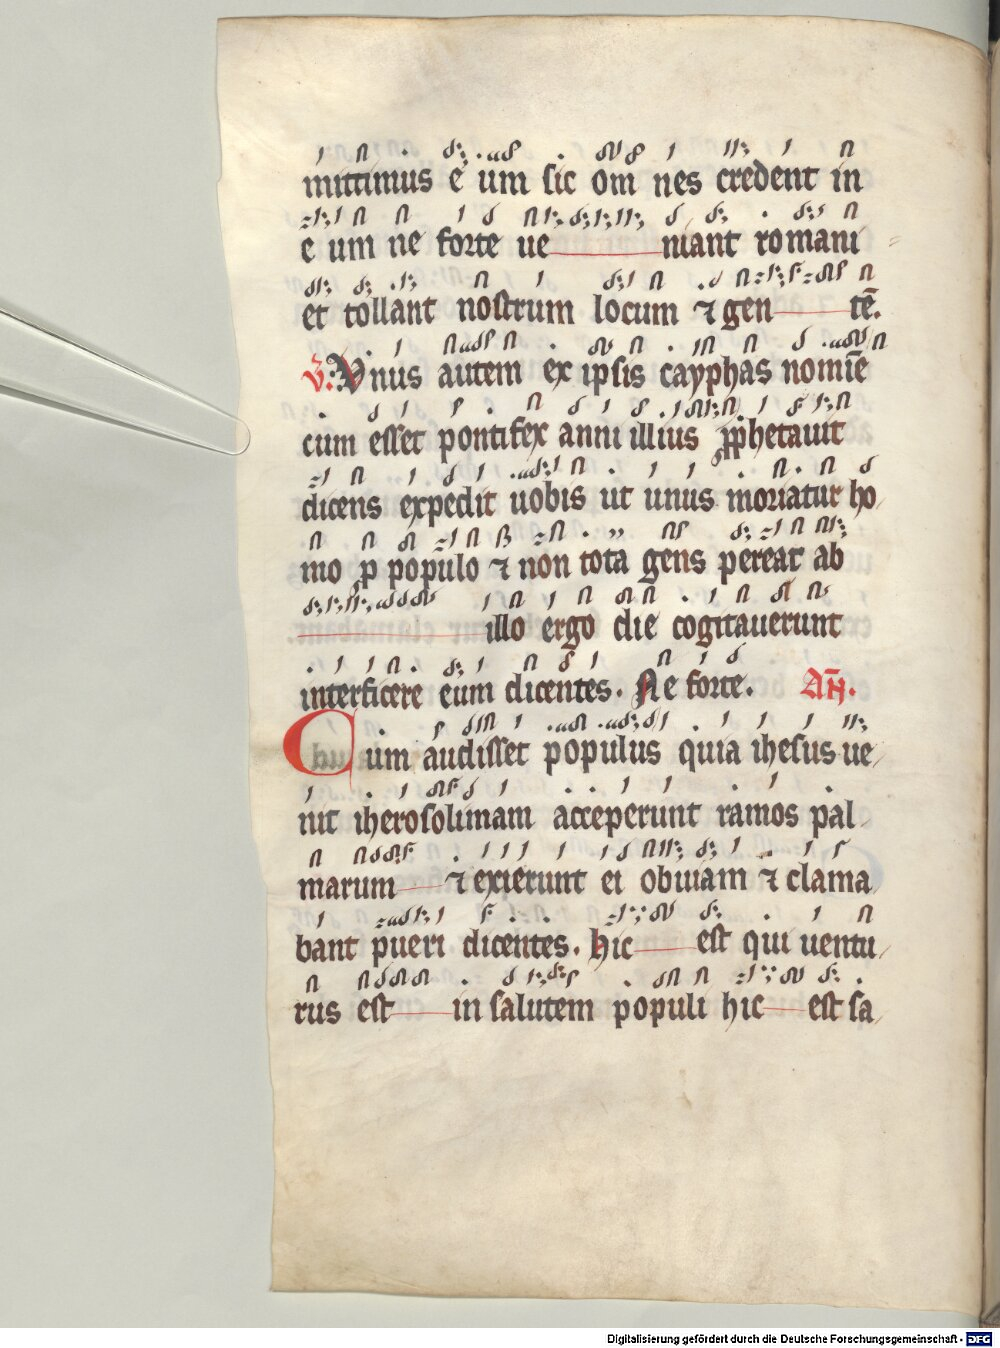 mittimus e um sic om nes credent in
e um ne forte ue niant romani
et tollant nostrum locum ⁊ gen tē.
V. Vnus autem ex ipsis cayphas nomīe
cum esset pontifex anni illius ꝓphetauit
dicens expedit uobis ut unus moriatur ho
mo ꝓ populo ⁊ non tota gens pereat ab
illo ergo die cogitauerunt
interficere eum dicentes. Ne forte. An̄.
Cum audisset populus quia ihesus ue
nit iherosolimam acceperunt ramos pal
marum ⁊ exierunt ei obuiam ⁊ clama
bant pueri dicentes. hic est qui uentu
rus est in salutem populi hic est sa
Digitalisierung gefördert durch die Deutsche Forschungsgemeinschaft - DFG